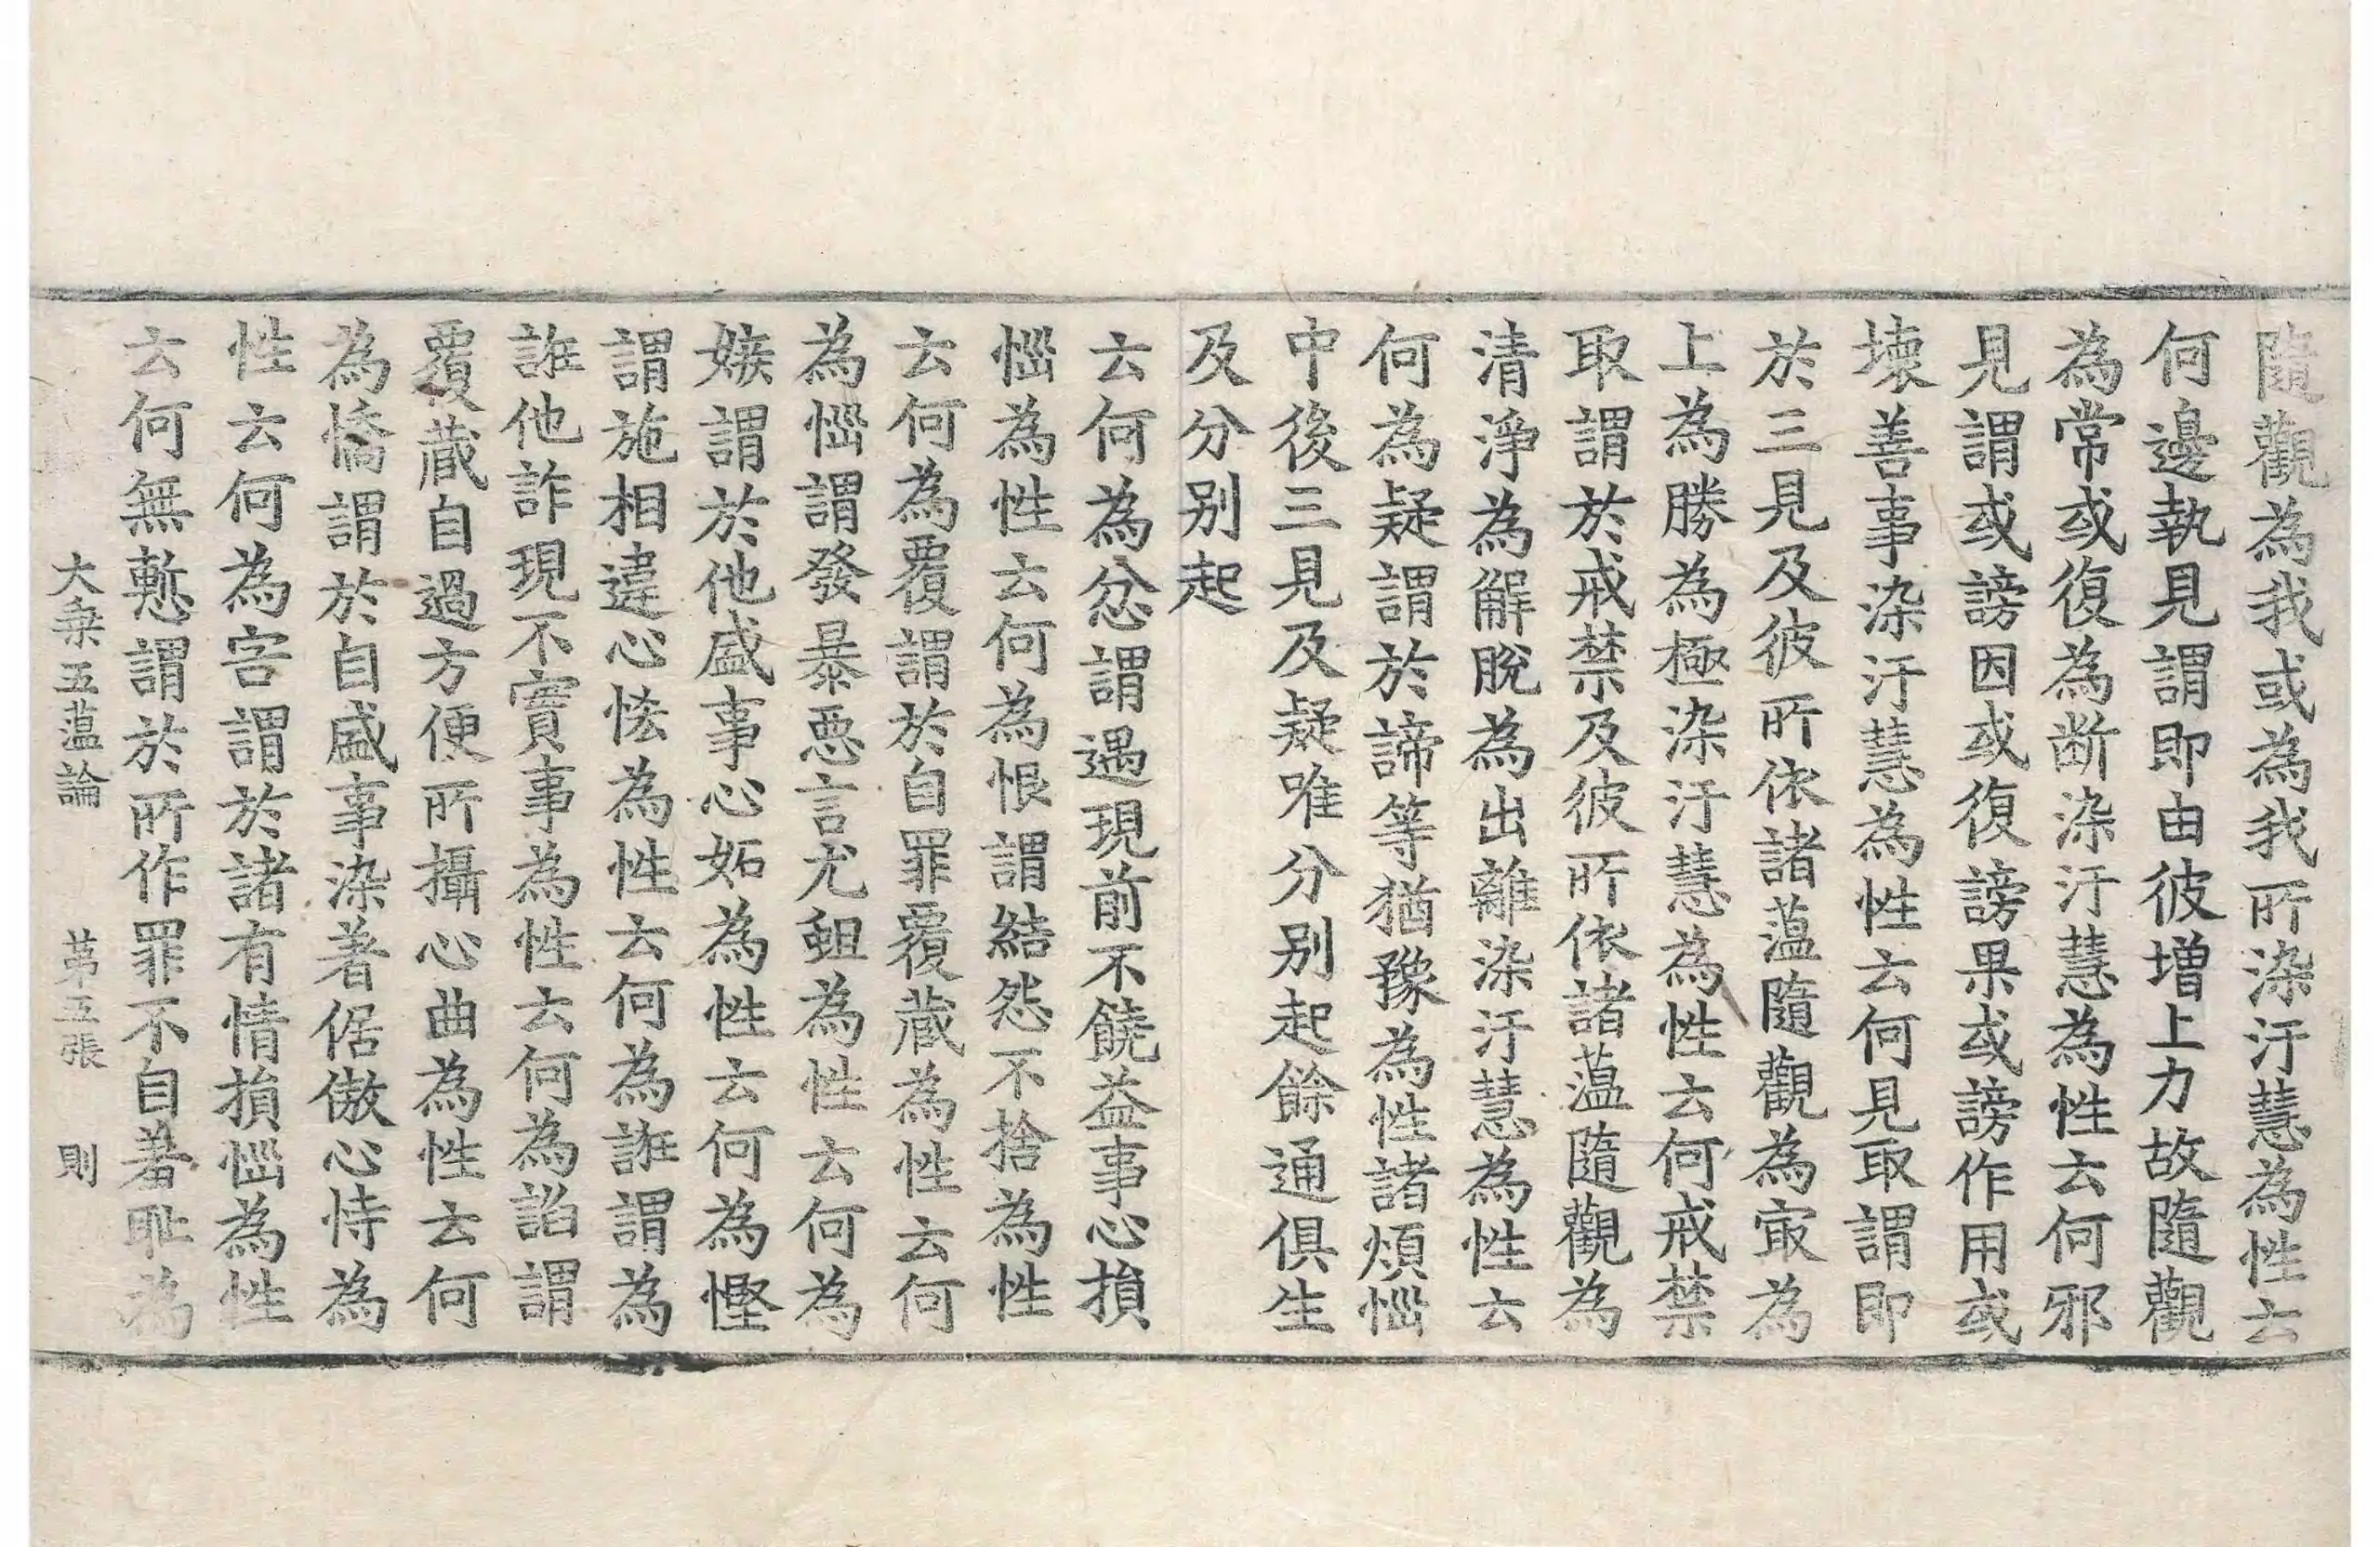 隨觀為我或為我所染汙慧為性云
何邊執見謂即由彼增上力故隨觀
為常或復為断染汙慧為性云何邪
見謂或謗因或復謗果或謗作用或
壞善事染汙慧為性云何見取謂即
於三見及彼所依諸蘊隨觀為㝡為
上為勝為極染汙慧為性云何戒禁
取謂於戒禁及彼所依諸蘊隨觀為
清淨為解脫為出離染汙慧為性云
何為疑謂於諦等猶豫為性諸煩惱
中後三見及疑唯分別起餘通俱生
及分別起
云何為忿謂遇現前不饒益事心損
惱為性云何為恨謂結怨不捨為性
云何為覆謂於自罪覆藏為性云何
為惱謂發暴惡言尤蛆為性云何為
嫉謂於他盛事心妬為性云何為慳
謂施相違心悋為性云何為誑謂為
誑他詐現不實事為性云何為諂謂
覆藏自過方便所攝心曲為性云何
為憍謂於自盛事染著倨傲心恃為
性云何為害謂於諸有情損惱為性
云何無慙謂於所作罪不自羞耻為
大乗五蘊論 苐五張 則